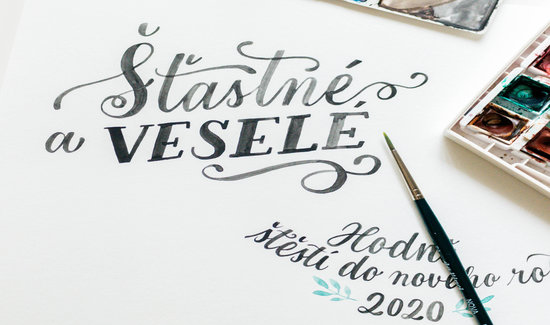 Šťastné
a VESELÉ
Hodně
štěstí do nového ro
2020